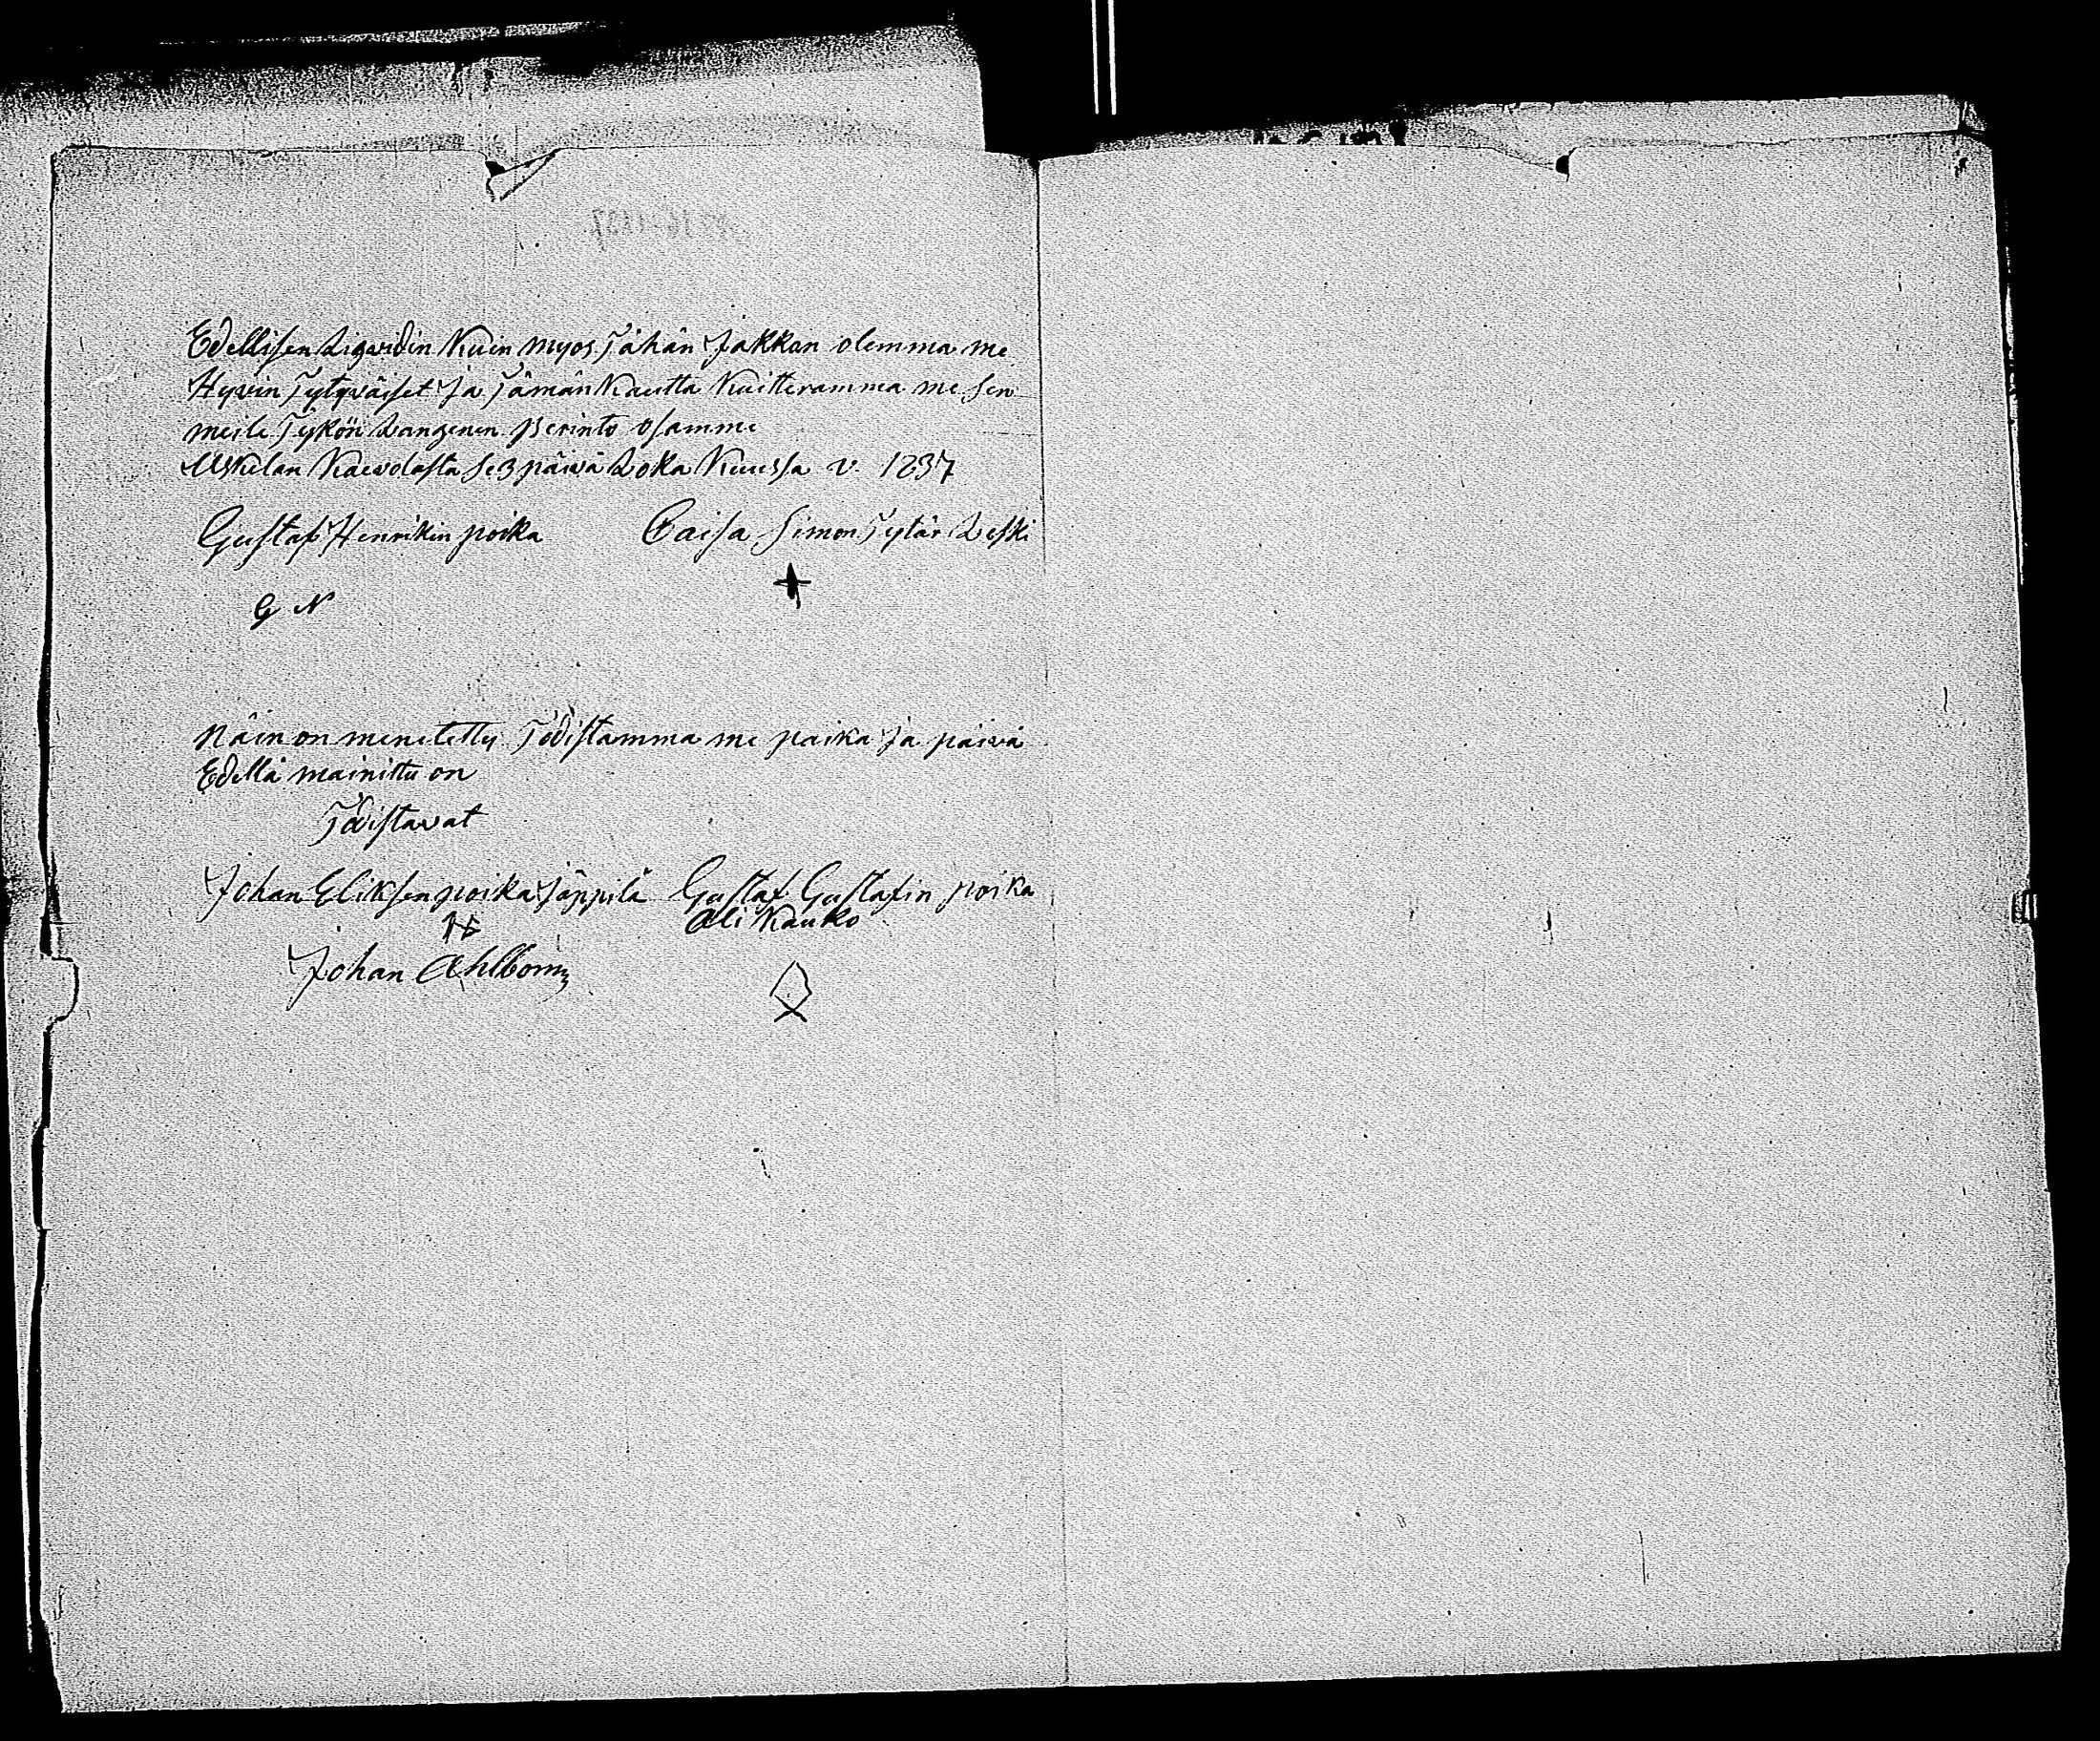 Edellisen Liqvidin Kuin myos Tähän Jakkon olemma me
Hyvin Tytyväiset Ja Tämän Kautta Kuitteramma me sen
meile Tykön Langenen Perinto osamme
Uskelan Kaevolasta se 3 päivä Loka Kuussa v. 1837
Gustaf Henrikin poika Caisa Simon Tytär Leski
G N
Näin on menetetty Todistamma me paika Ja päivä
Edellä mainittu on
Todistavat
Johan Eliksen poika Jäppilä Gustaf Gustafin poika
Ali Kauko
Johan Ahlbom